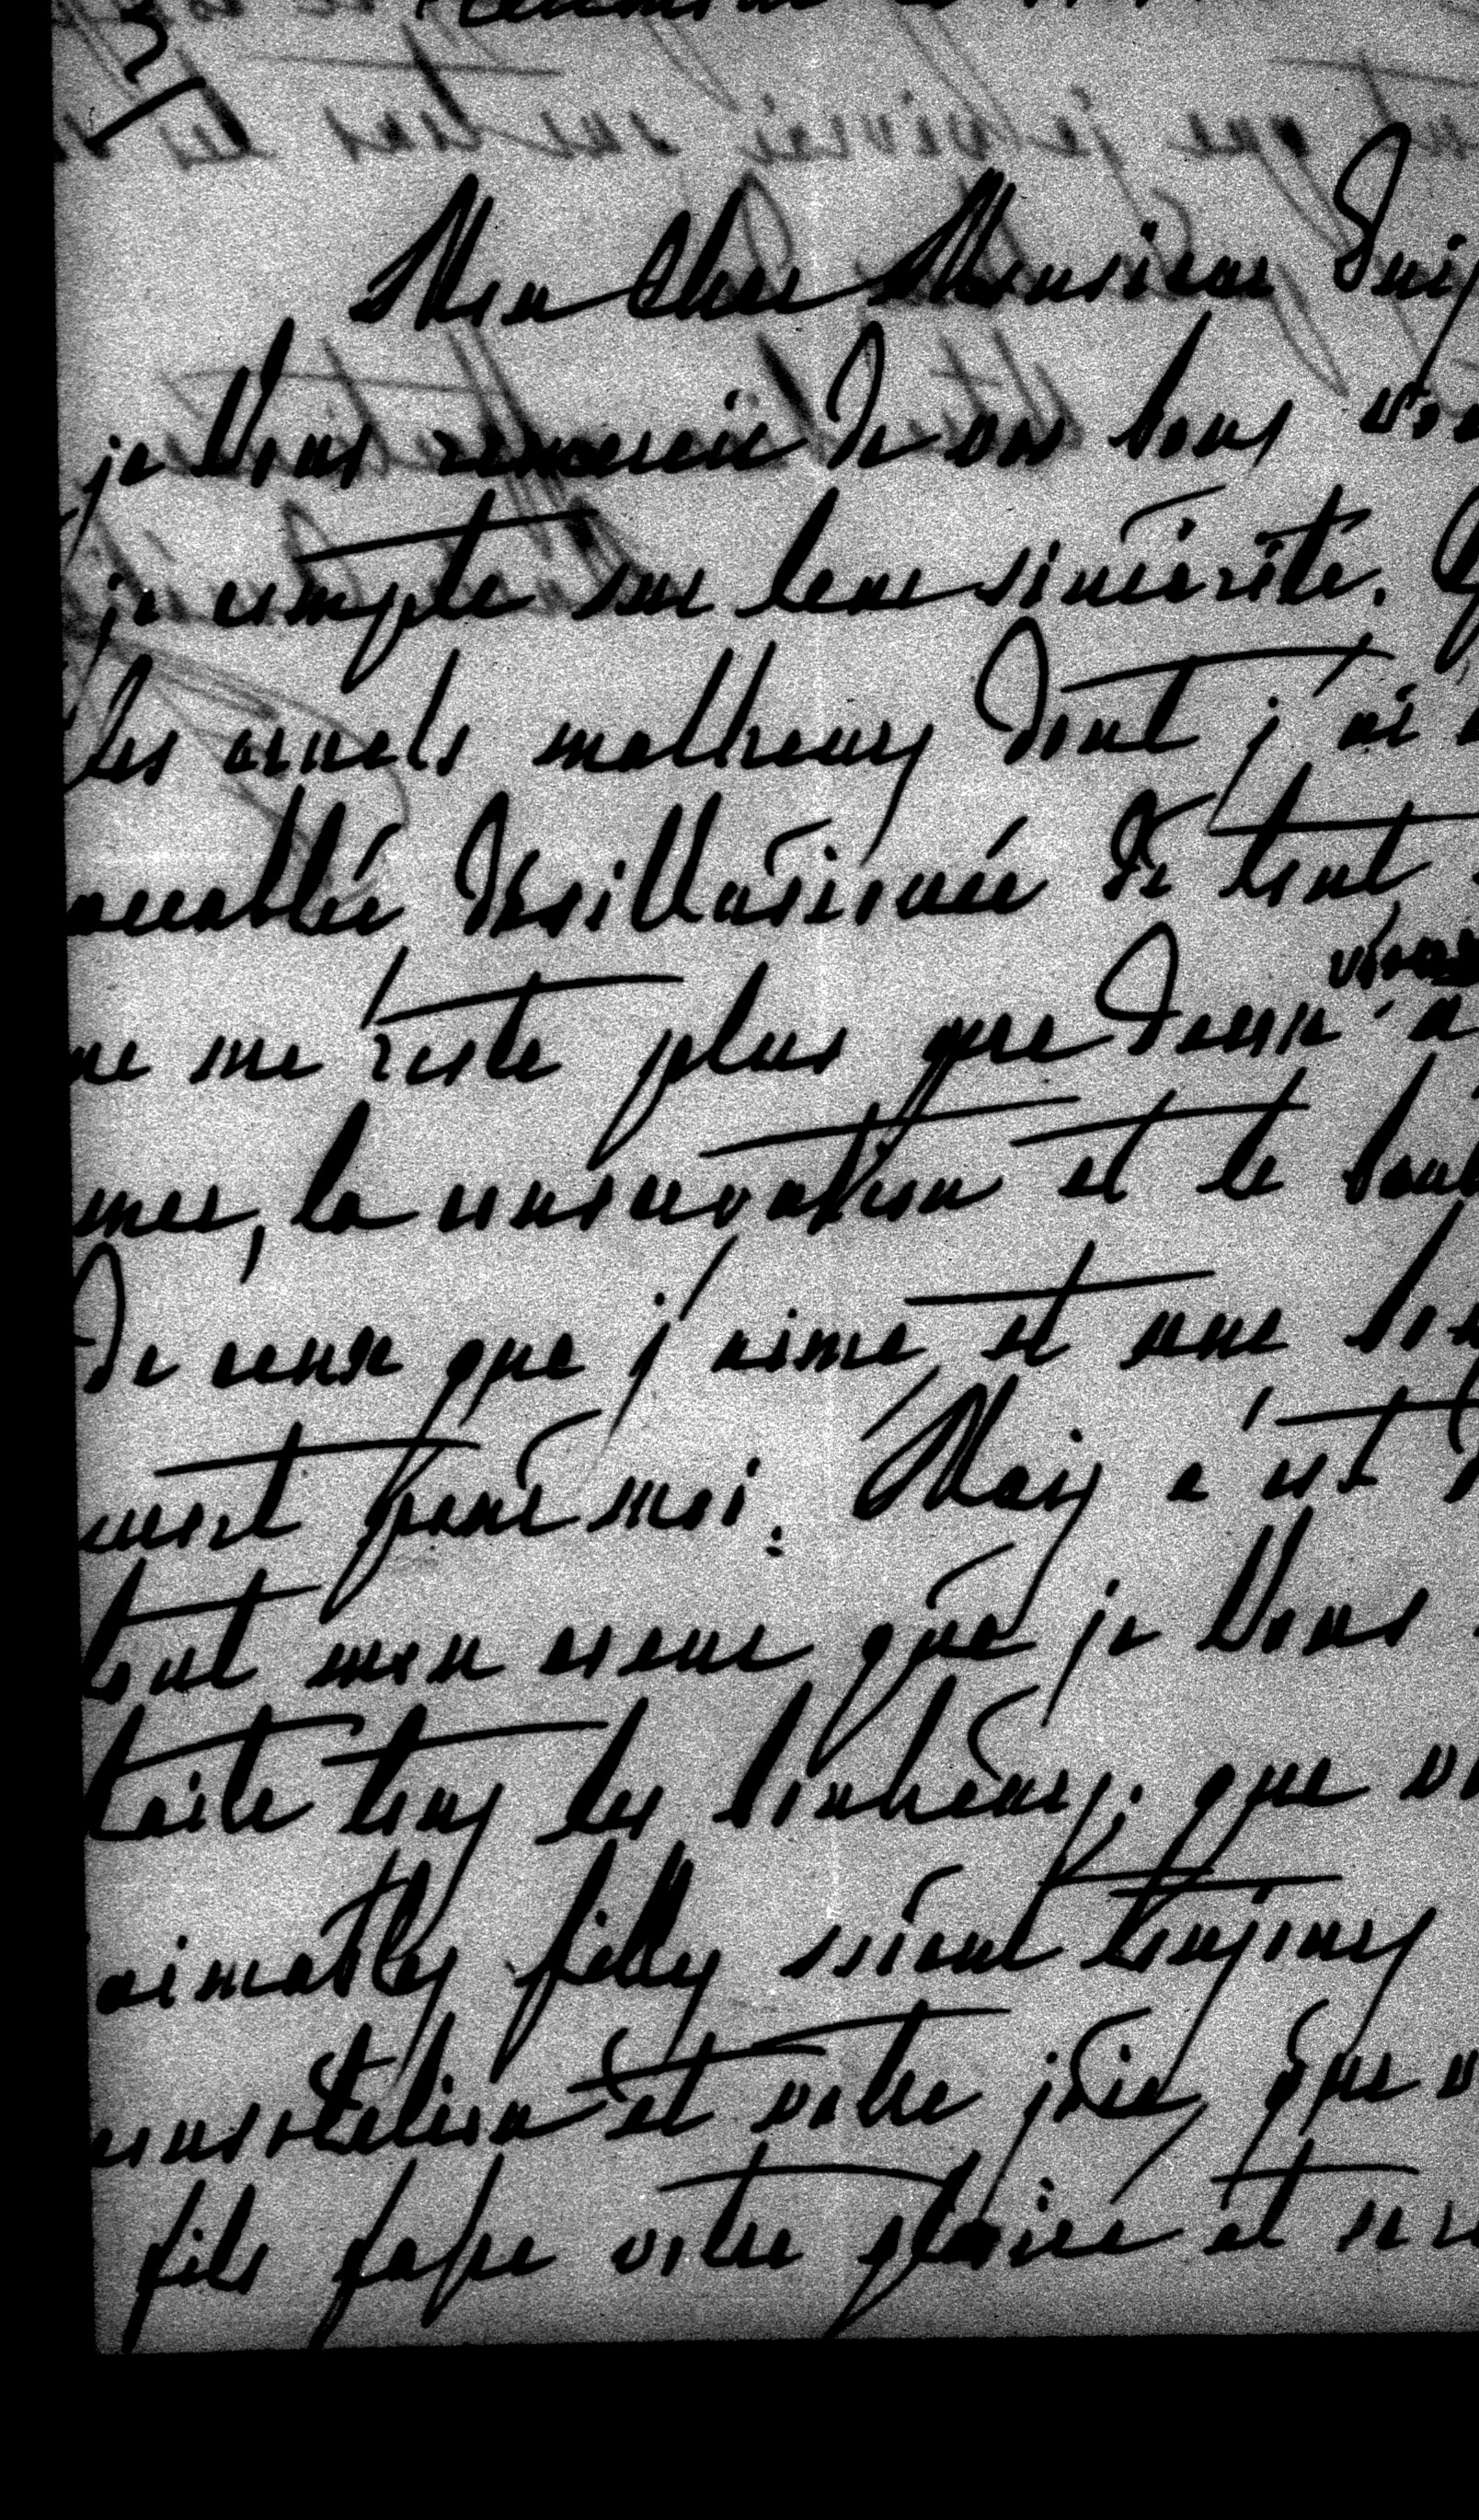 Mon cher Monsieur
je Vous remercie de vos bons
je compte sur leur sincérité.
les cruels malheurs dont j'ai
accablée désillusionée de tout
ne me reste plus que deux
mer, la conservation et le
de ceux que j'aime, et une
mort pour moi. Mais c'est
tout mon coeur que je Vous
haite tous les bonheurs. que
aimables filles soient toujours
consolation et votre joie, que
fils fasse votre gloire et